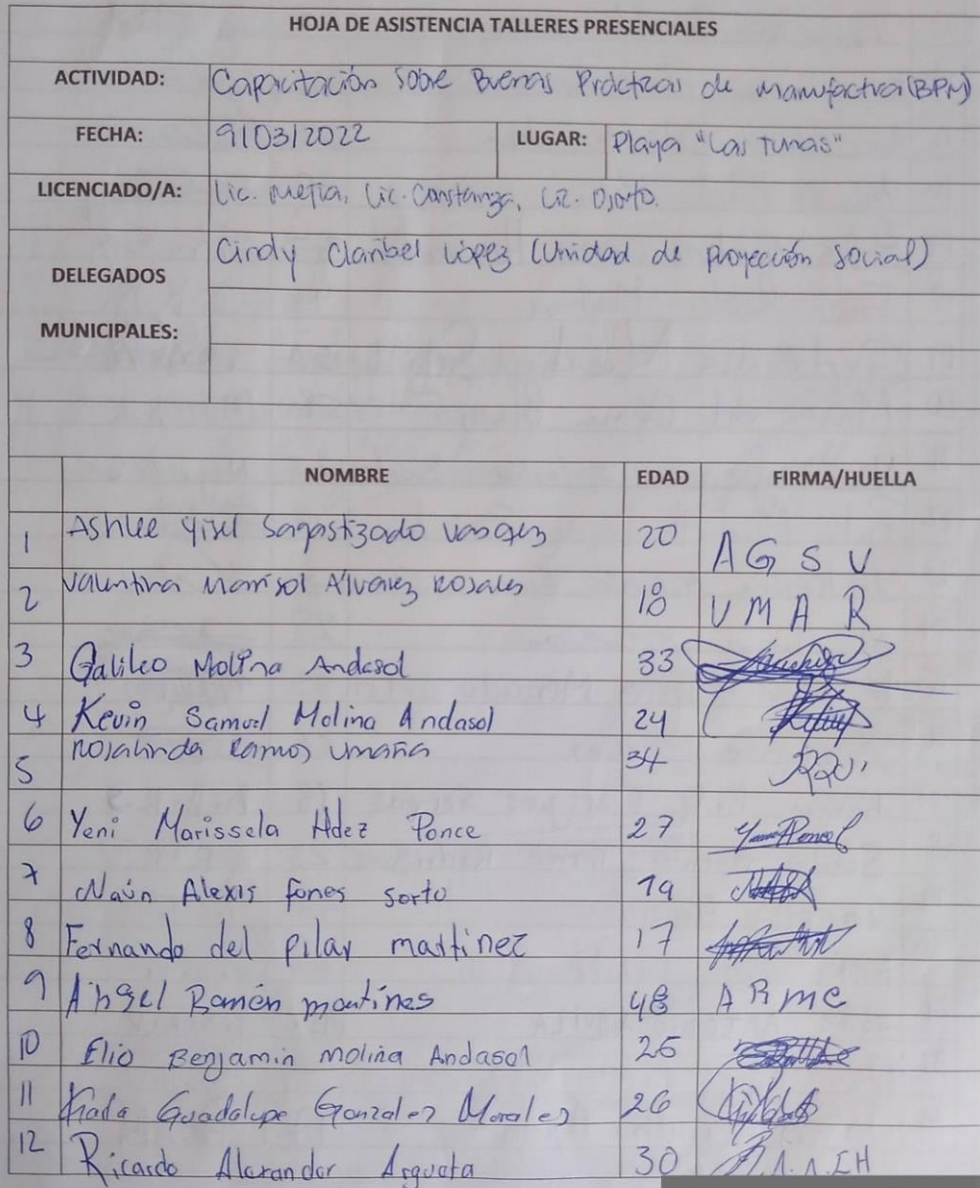 HOJA DE ASISTENCIA TALLERES PRESENCIALES
ACTIVIDAD: Capacitación sobre Buenas Prácticas de manufactura (BPM)
FECHA: 9/03/2022 LUGAR: Playa "Las Tunas"
LICENCIADO/A: Lic. Mejía, Lic. Constanza, Lic. Osorto.
DELEGADOS MUNICIPALES: Cindy Claribel López (Unidad de proyección social)
NOMBRE EDAD FIRMA/HUELLA
1 Ashlee Gisel Sagastizado Vasquez 20 A G S V
2 Valentina Marisol Álvarez Rosales 18 V M A R
3 Galileo Molina Andasol 33
4 Kevin Samuel Molina Andasol 24
5 Rosalinda Ramos Umaña 34 RRU.
6 Yeni Marissela Hdez Ponce 27
7 Naún Alexis fones sorto 19
8 Fernando del pilar martinez 17
9 Angel Ramón martines 48 A R m c
10 Elio Benjamin molina Andasol 25
11 Guadalupe Gonzalez Morales 26
12 Ricardo Alexander Argueta 30